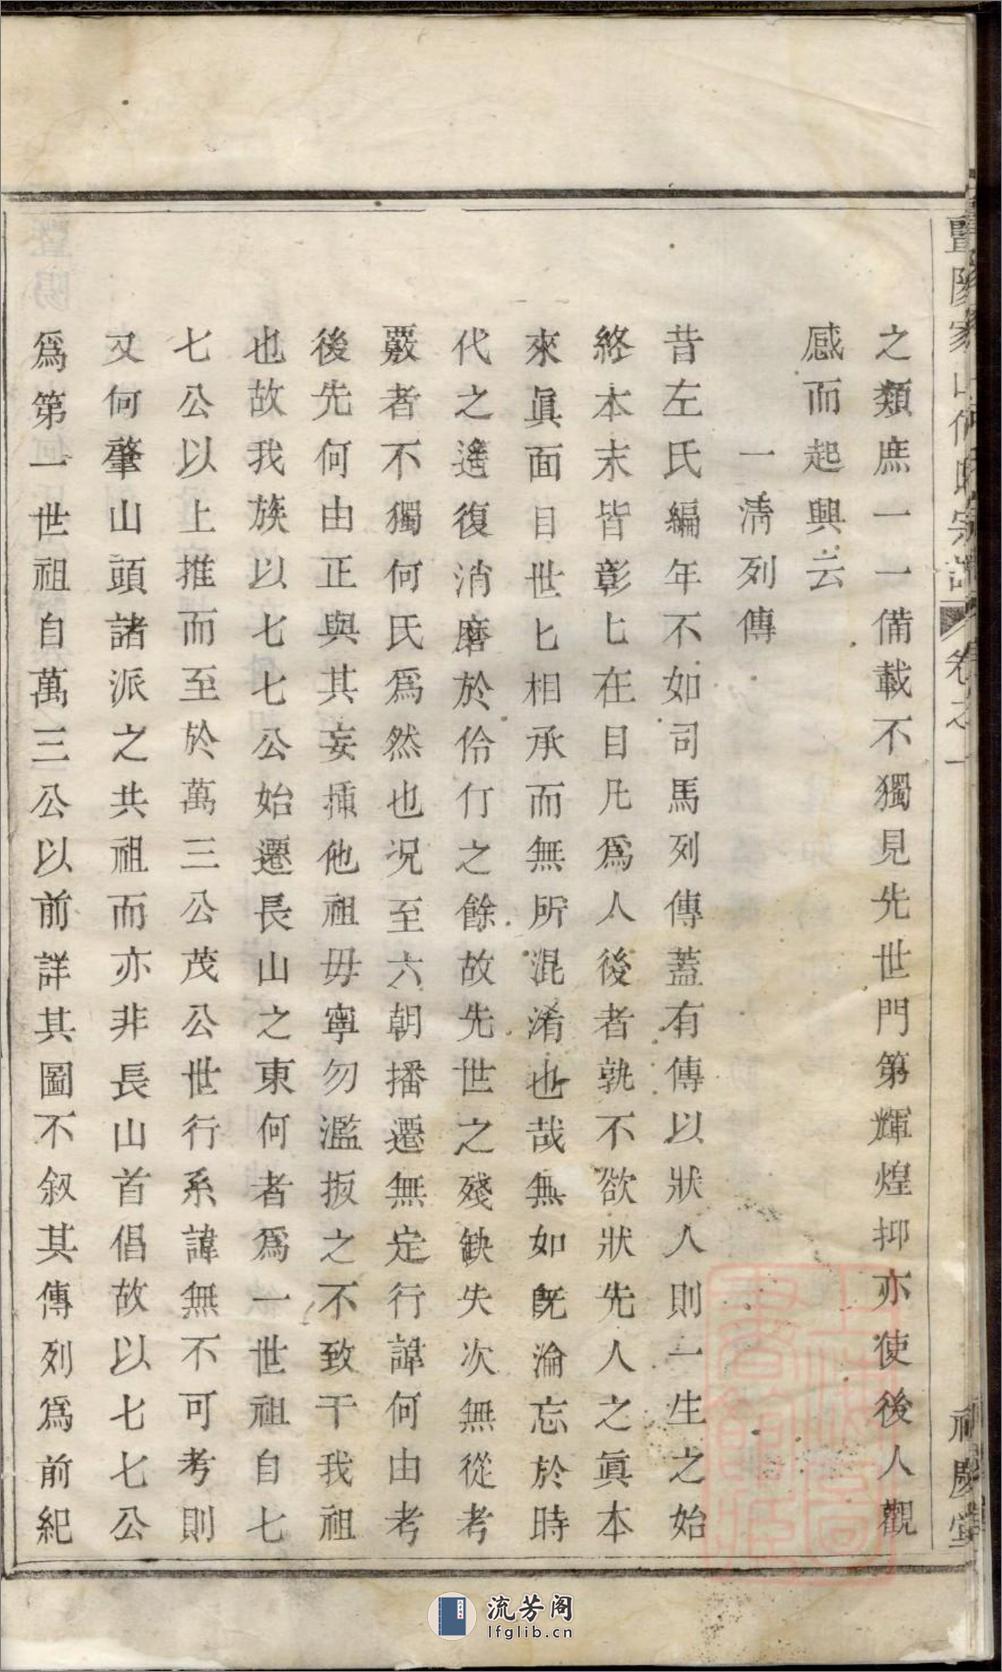 暨陽家山何氏宗譜 卷之一 慶堂
之類庶一一備載不獨見先世門第輝煌抑亦使後人觀
感而起興云
一清列傳
昔左氏編年不如司馬列傳蓋有傳以狀人則一生之始
終本末皆彰匕在目凡爲人後者孰不欲狀先人之眞本
來眞面目世匕相承而無所混淆也哉無如旣淪忘於時
代之遙復消磨於伶仃之餘故先世之殘缺失次無從考
覈者不獨何氏爲然也况至六朝播遷無定行諱何由考
後先何由正與其妄揷他祖毋寧勿濫扳之不致干我祖
也故我族以七七公始遷長山之東何者爲一世祖自七
七公以上推而至於萬三公茂公世行系諱無不可考則
又何肇山頭諸派之共祖而亦非長山首倡故以七七公
爲第一世祖自萬三公以前詳其圖不叙其傳列爲前紀
流芳阁
lfglib.cn